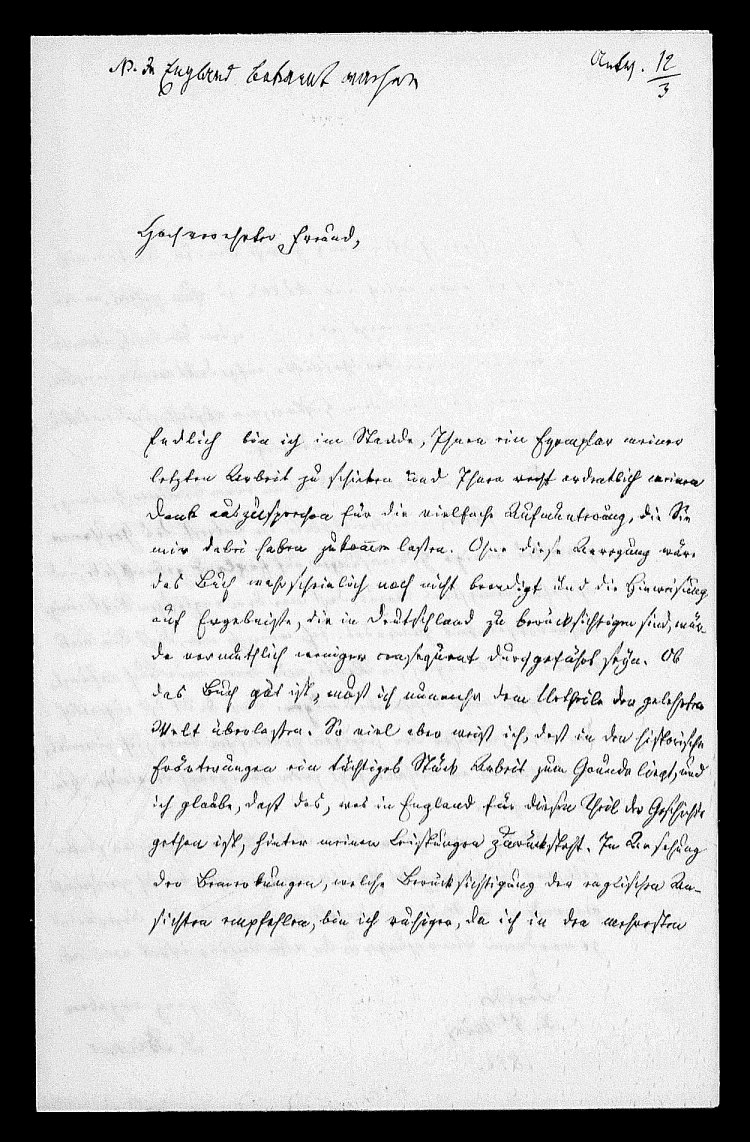 NB. In England bekannt machen
Antw. 12/3
Hochverehrter Freund,
Endlich bin ich im Stande, Ihnen ein Exemplar meiner
letzten Arbeit zu schicken und Ihnen recht ordentlich meinen
Dank auszusprechen für die vielfache Aufmunterung, die Sie
mir dabei haben zukommen lassen. Ohne diese Anregung wäre
das Buch wahrscheinlich noch nicht beendigt und die Hinweisung
auf Ergebnisse, die in Deutschland zu berücksichtigen sind, wür-
de vermuthlich weniger consequent durchgeführt seyn. Ob
das Buch gut ist, muß ich nunmehr dem Urtheile der gelehrten
Welt überlassen. So viel aber weiß ich, daß in den historischen
Erörterungen ein tüchtiges Stück Arbeit zum Grunde liegt, und
ich glaube, daß das, was in England für diesen Theil der Geschichte
gethan ist, hinter meinen Leistungen zurücksteht. In Ansehung
der Bemerkungen, welche Berücksichtigung der englischen An-
sichten empfehlen, bin ich ruhiger, da ich in den mehresten